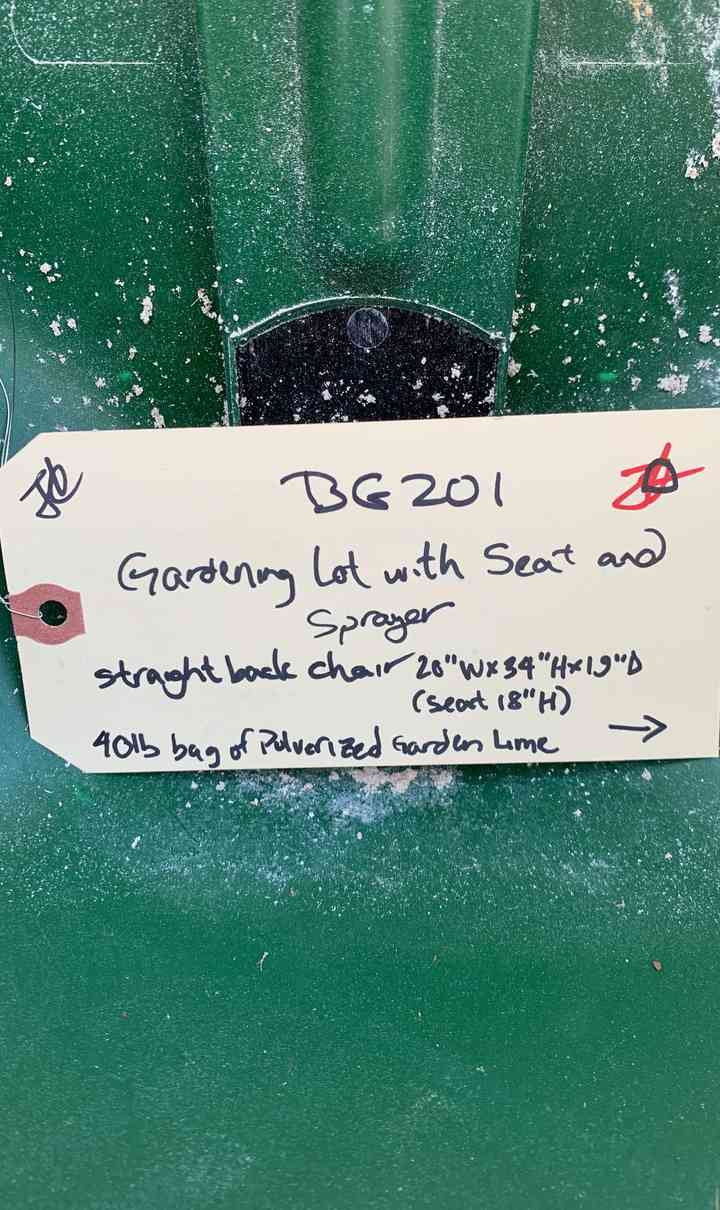 BG201
Gardening Lot with Seat and
Sprayer
straight back chair 20"W x 34"H x 19"D
(seat 18"H)
40lb bag of Pulverized Garden Lime →